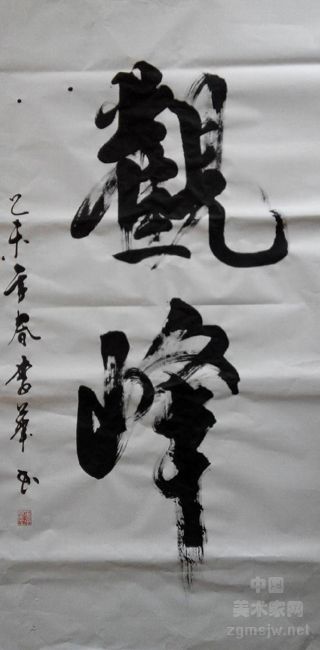 觀峰
乙未年春李華书
中国
美术家网
zgmsjw.net